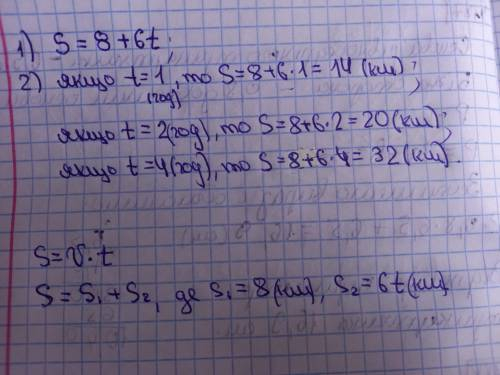 1) S = 8 + 6t;
2) якщо t = 1, то S = 8 + 6 · 1 = 14 (км);
(год)
якщо t = 2 (год), то S = 8 + 6 · 2 = 20 (км);
якщо t = 4 (год), то S = 8 + 6 · 4 = 32 (км).
S = V · t
S = S₁ + S₂, де S₁ = 8 (км), S₂ = 6t (км)